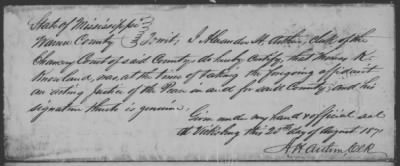 State of Mississippi
Warren County } To wit; I Alexander H. Arthur, Clerk of the
Chancery Court of said County, do hereby certify, that Money K.
Knowland, was, at the time of taking the foregoing affidavit
an acting Justice of the Peace in and for said County; and his
signature thereto is genuine.
Given under my hand & official seal
at Vicksburg this 25th day of August 187
A H Arthur Clk